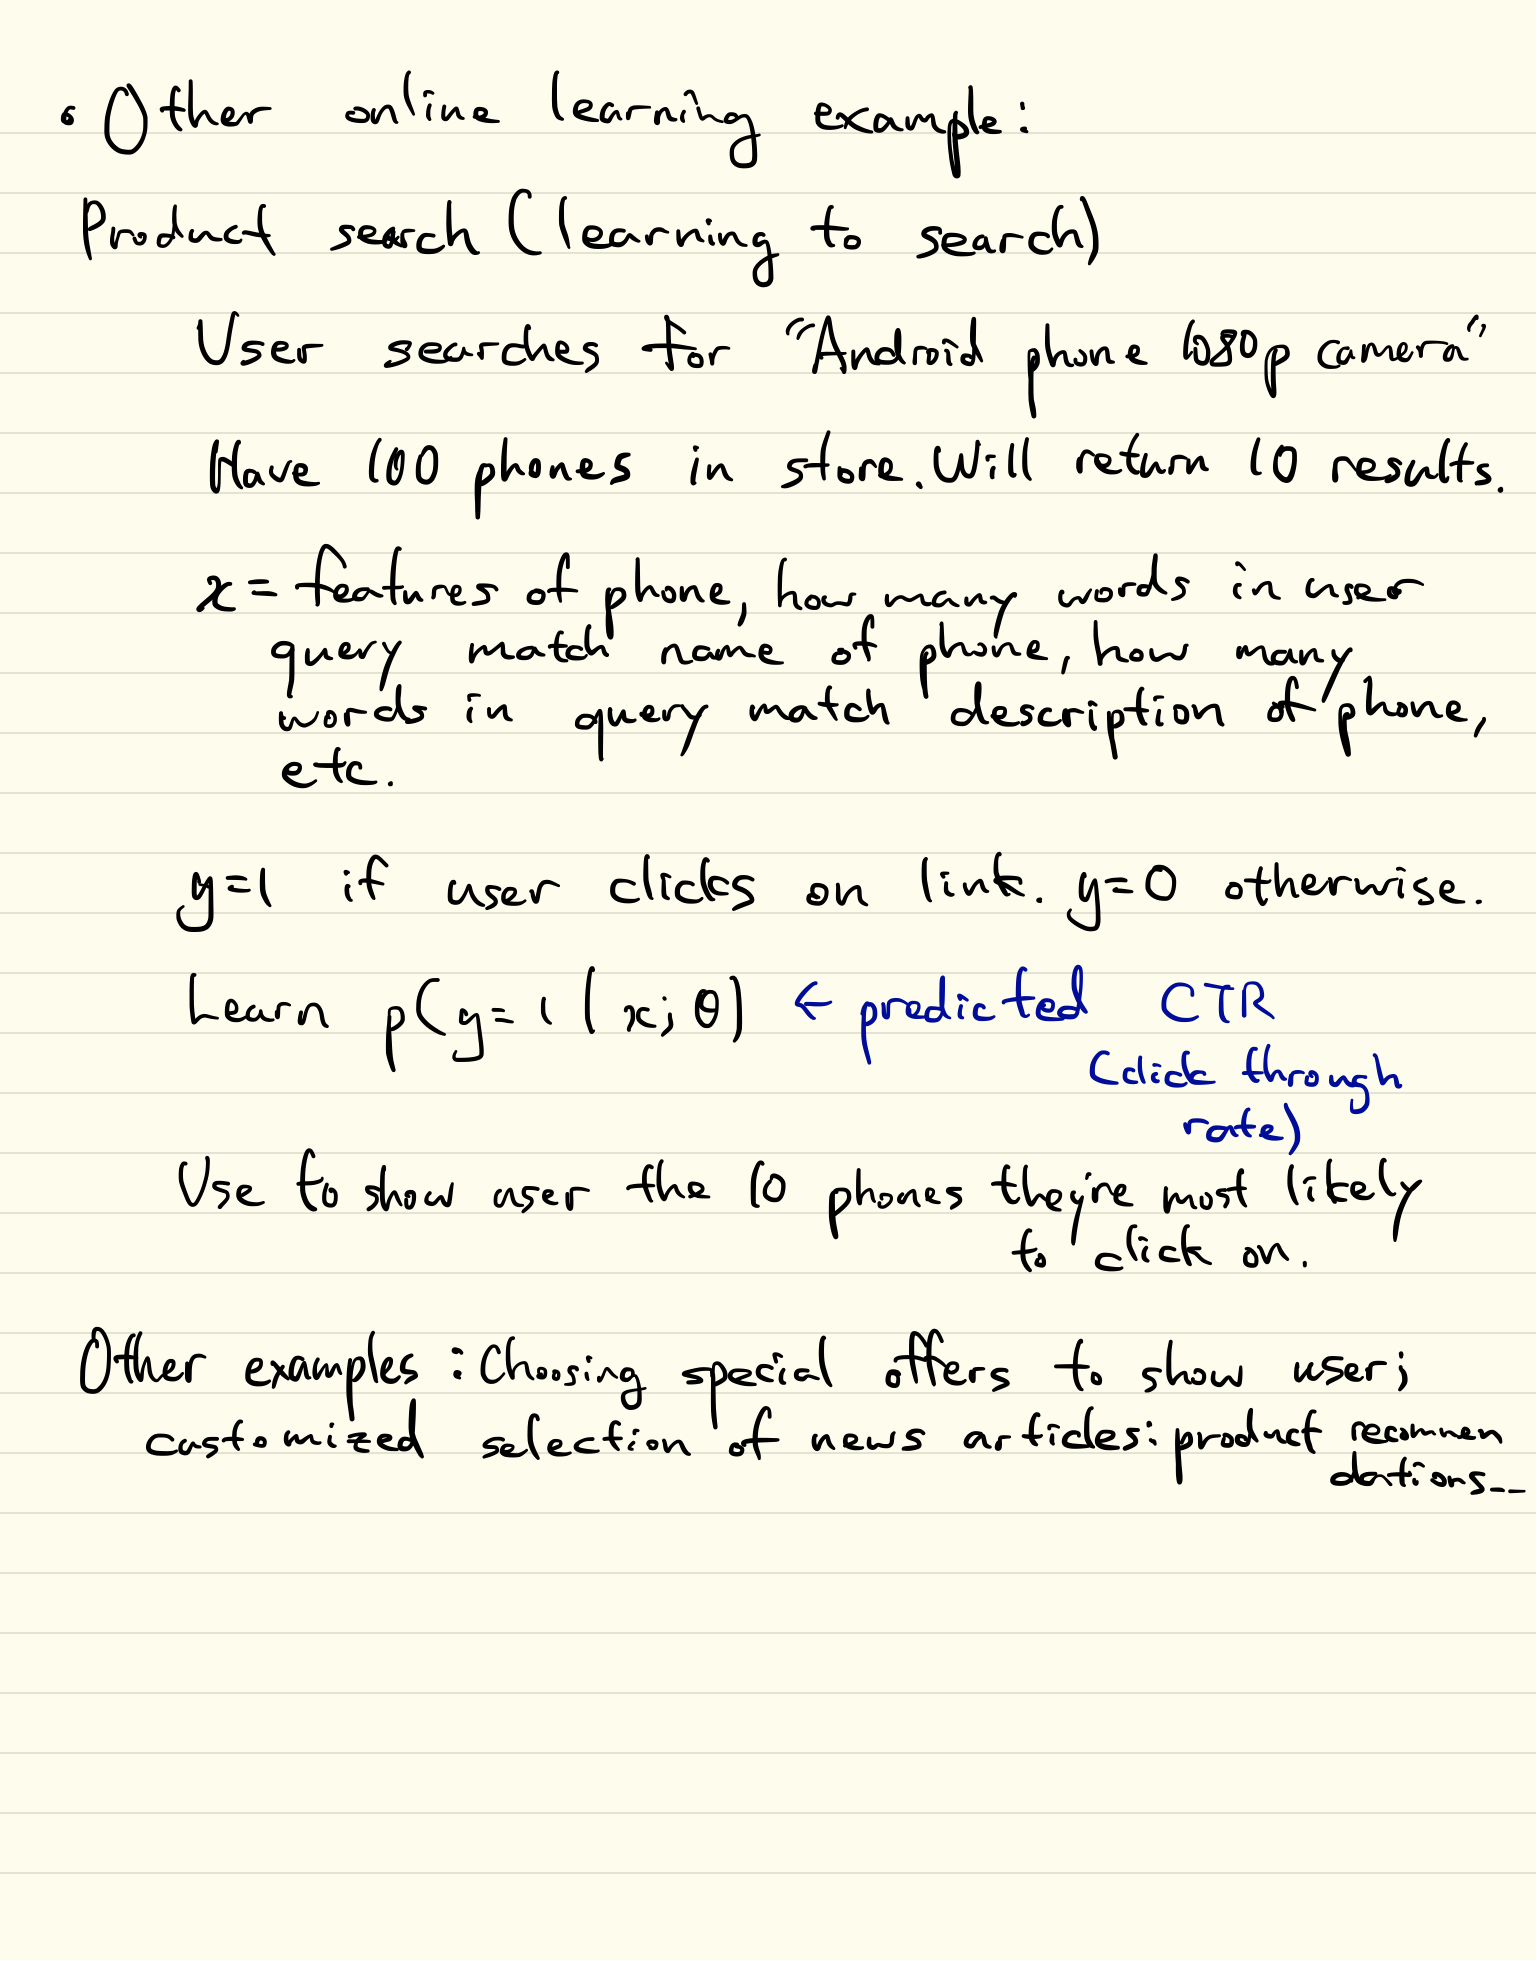 • Other online learning example:
Product search (learning to search)
User searches for "Android phone 1080p camera"
Have 100 phones in store. Will return 10 results.
x = features of phone, how many words in user
query match name of phone, how many
words in query match description of phone,
etc.
y=1 if user clicks on link. y=0 otherwise.
Learn p(y=1 | x; θ) ← predicted CTR
(click through
rate)
Use to show user the 10 phones they're most likely
to click on.
Other examples : Choosing special offers to show user;
customized selection of news articles: product recommen
dations--